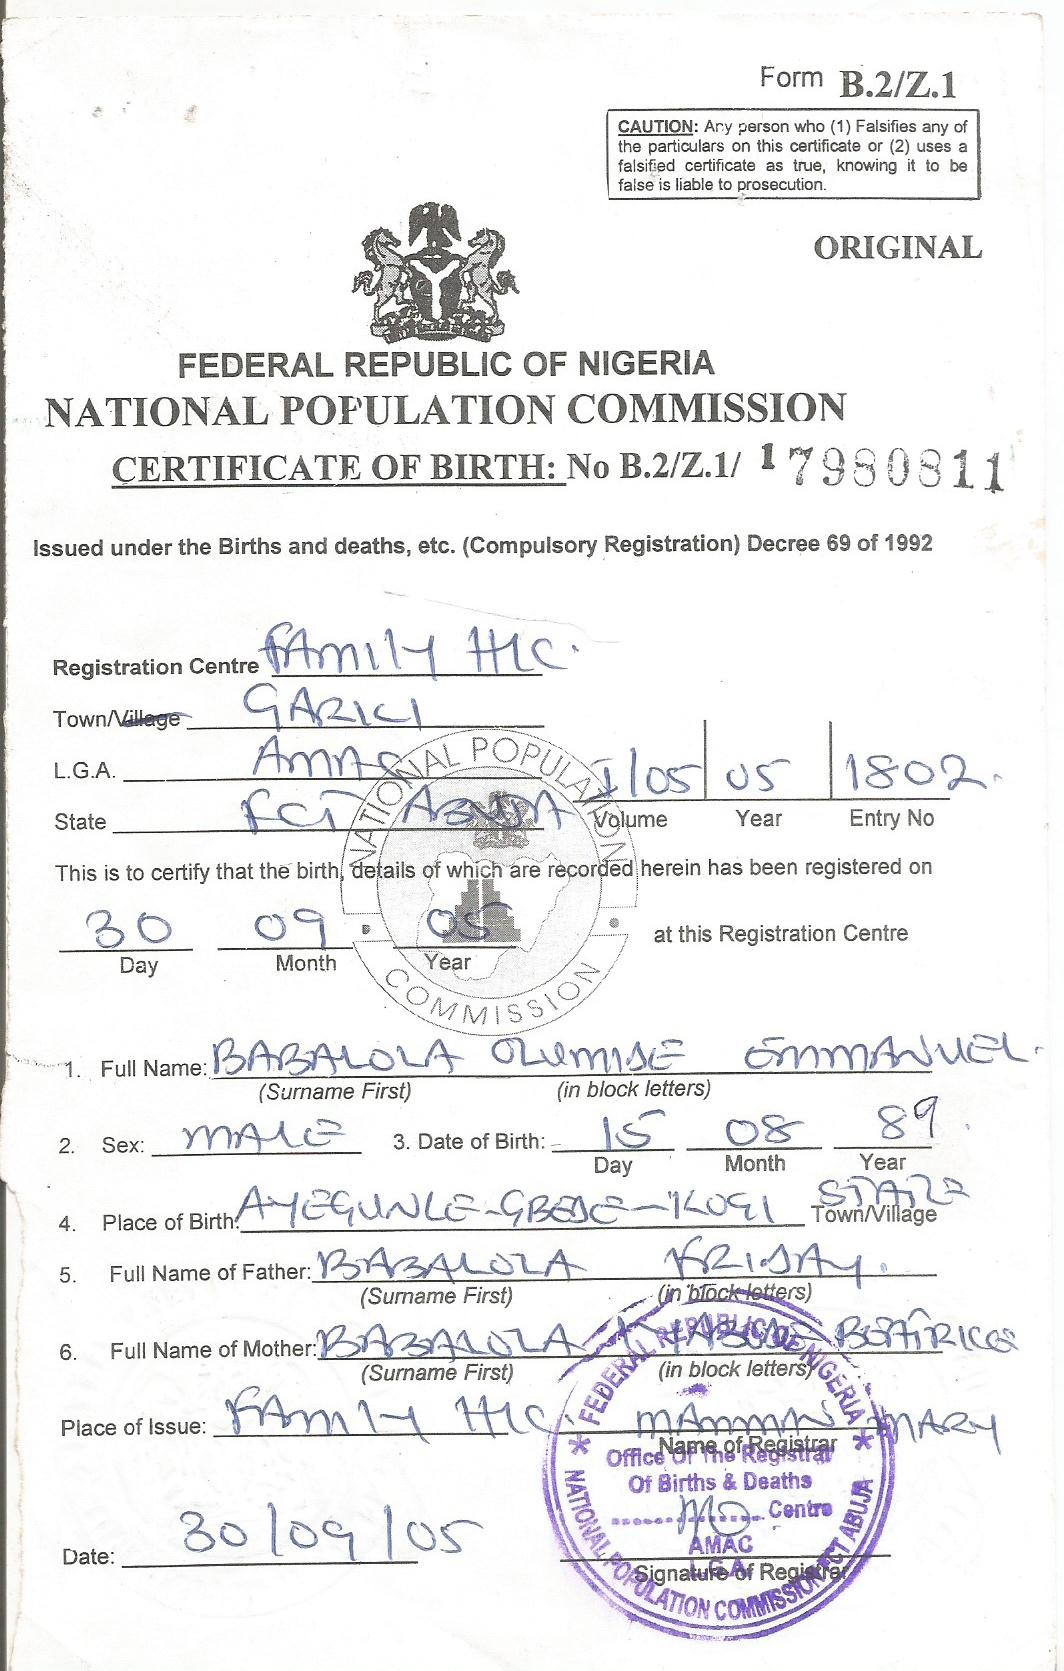 Form B.2/Z.1
CAUTION: Any person who (1) Falsifies any of
the particulars on this certificate or (2) uses a
falsified certificate as true, knowing it to be
false is liable to prosecution.
ORIGINAL
FEDERAL REPUBLIC OF NIGERIA
NATIONAL POPULATION COMMISSION
CERTIFICATE OF BIRTH: No B.2/Z.1/ 17980811
Issued under the Births and deaths, etc. (Compulsory Registration) Decree 69 of 1992
Registration Centre FAMILY H/C.
Town/Village GARKI
L.G.A. AMAC
I/05 05 1802.
State FCT ABUJA
Volume Year Entry No
NATIONAL POPULATION COMMISSION
This is to certify that the birth, details of which are recorded herein has been registered on
30 09 05 at this Registration Centre
Day Month Year
1. Full Name: BABALOLA OLUMIDE EMMANUEL.
(Surname First) (in block letters)
2. Sex: MALE 3. Date of Birth: 15 08 89.
Day Month Year
4. Place of Birth: AYEGUNLE-GBEDE-KOGI STATE
Town/Village
5. Full Name of Father: BABALOLA FRIDAY.
(Surname First) (in block letters)
6. Full Name of Mother: BABALOLA
(Surname First) (in block letters)
Place of Issue: FAMILY H/C. MARY
Name of Registrar
Date: 30/09/05
Signature of Registrar
FEDERAL REPUBLIC OF NIGERIA
Office Of The Registrar
Of Births & Deaths
Centre
AMAC
L.G.A.
NATIONAL POPULATION COMMISSION FCT ABUJA